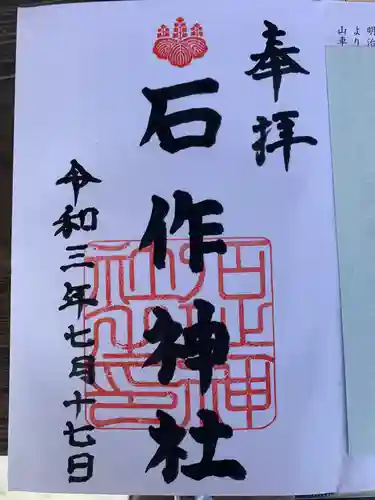 明治
より
山車
奉拝
石作神社
令和三年七月十七日
石作神社之印